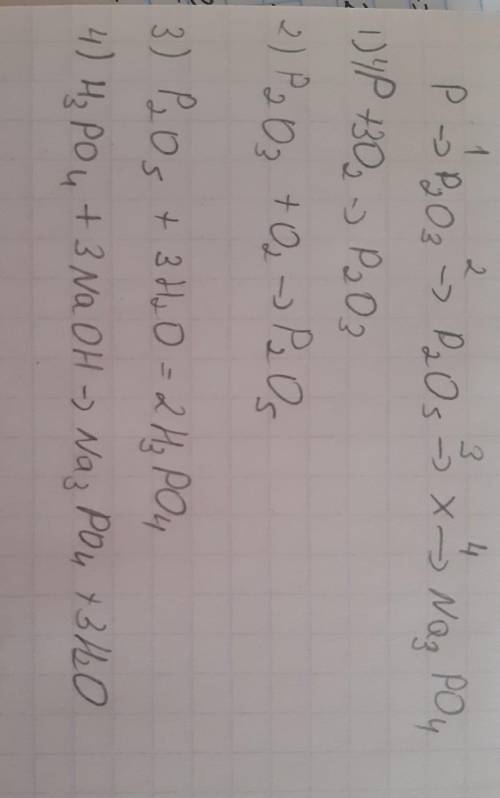 P →¹ P₂O₃ →² P₂O₅ →³ X →⁴ Na₃PO₄
1) 4P + 3O₂ → P₂O₃
2) P₂O₃ + O₂ → P₂O₅
3) P₂O₅ + 3H₂O = 2H₃PO₄
4) H₃PO₄ + 3NaOH → Na₃PO₄ + 3H₂O